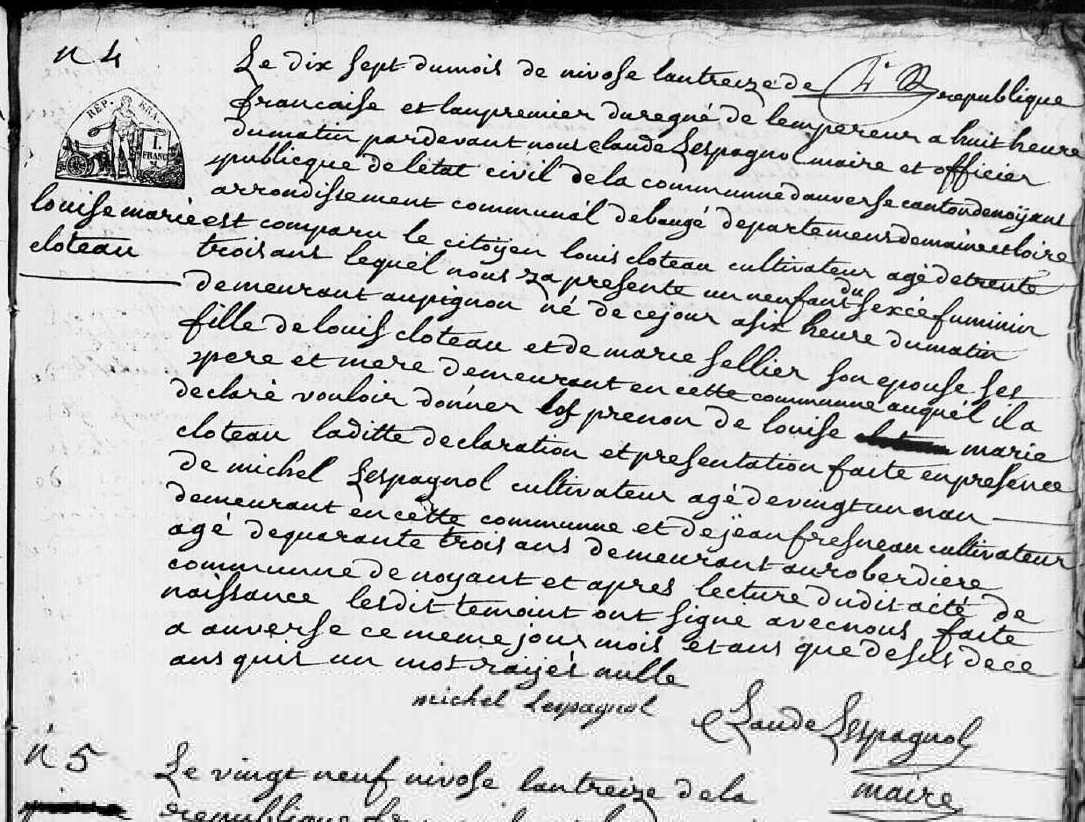 n 4
Le dix sept du mois de nivose lantreize de la republique
francaise et lanpremier duregné de lempereur a huit heure
dumatin pardevant nous claude Lespagnol maire et officier
publicque deletat civil dela communne dauverse canton de noÿant
arrondissement communál debaugé departement demaine et loire
REP. FRA.
1.
FRANC
louise marie
cloteau
est comparu le citoÿen louis cloteau cultivateur agé detrente
trois ans lequél nous za presente un nenfant du sexcé fuminin
demeurant aupignon né de cejour asix heure dumatin
fille de louis cloteau et de marie sellier son epouse ses
pere et mere demeurant en cette communne auquél il a
declaré vouloir donner les prenon de louise marie
cloteau laditte declaration et presentation faite en presence
de michel Lespagnol cultivateur agé de vingt un nan
demeurant en cette communne et de jean fresneau cultivateur
agé dequarante trois ans demeurant auroberdiere
communne de noyant et apres lecture dudit acté de
naissance lesdit temoint ont signé avec nous faite
a auverse ce meme jour mois et ans que desus de ce
ans quit un mot raÿés nulle
michel Lespagnol
Claude Lespagnol
maire
n 5
Le vingt neuf nivose lantreize dela
republique